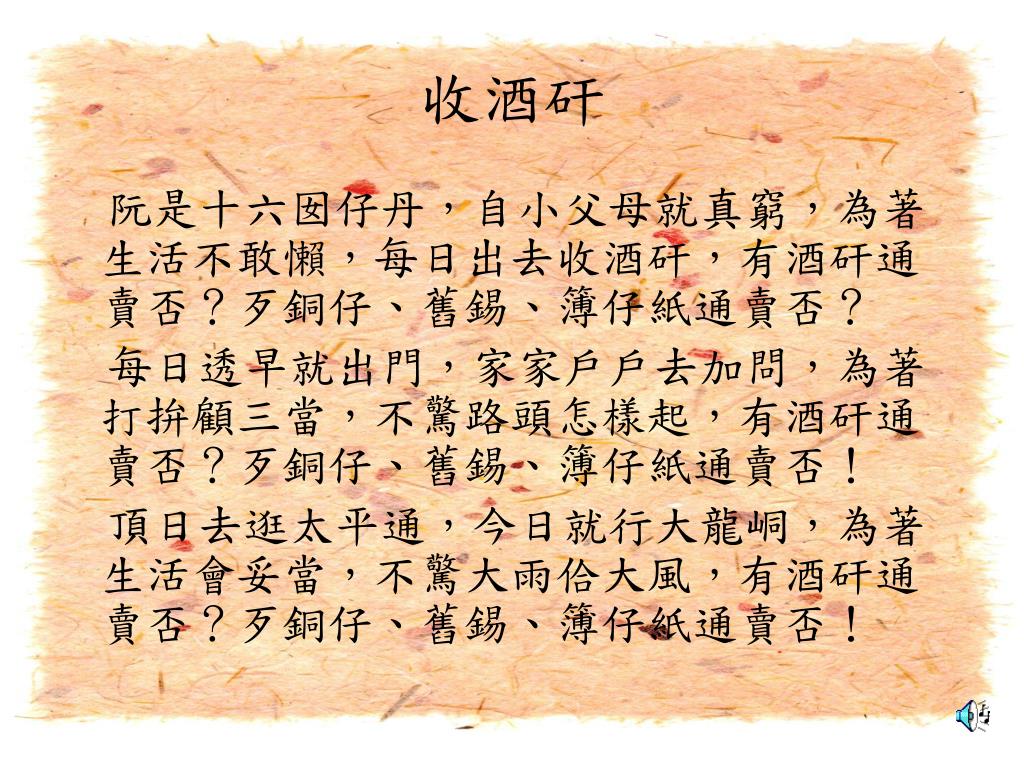 收酒矸
阮是十六囡仔丹，自小父母就真窮，為著
生活不敢懶，每日出去收酒矸，有酒矸通
賣否？歹銅仔、舊錫、簿仔紙通賣否？
每日透早就出門，家家戶戶去加問，為著
打拚顧三當，不驚路頭怎樣起，有酒矸通
賣否？歹銅仔、舊錫、簿仔紙通賣否！
頂日去逛太平通，今日就行大龍峒，為著
生活會妥當，不驚大雨佮大風，有酒矸通
賣否？歹銅仔、舊錫、簿仔紙通賣否！